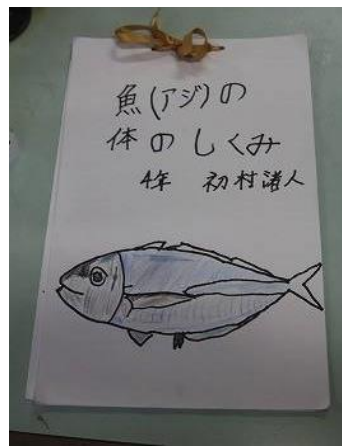 魚(アジ)の
体のしくみ
4年 初村渚人